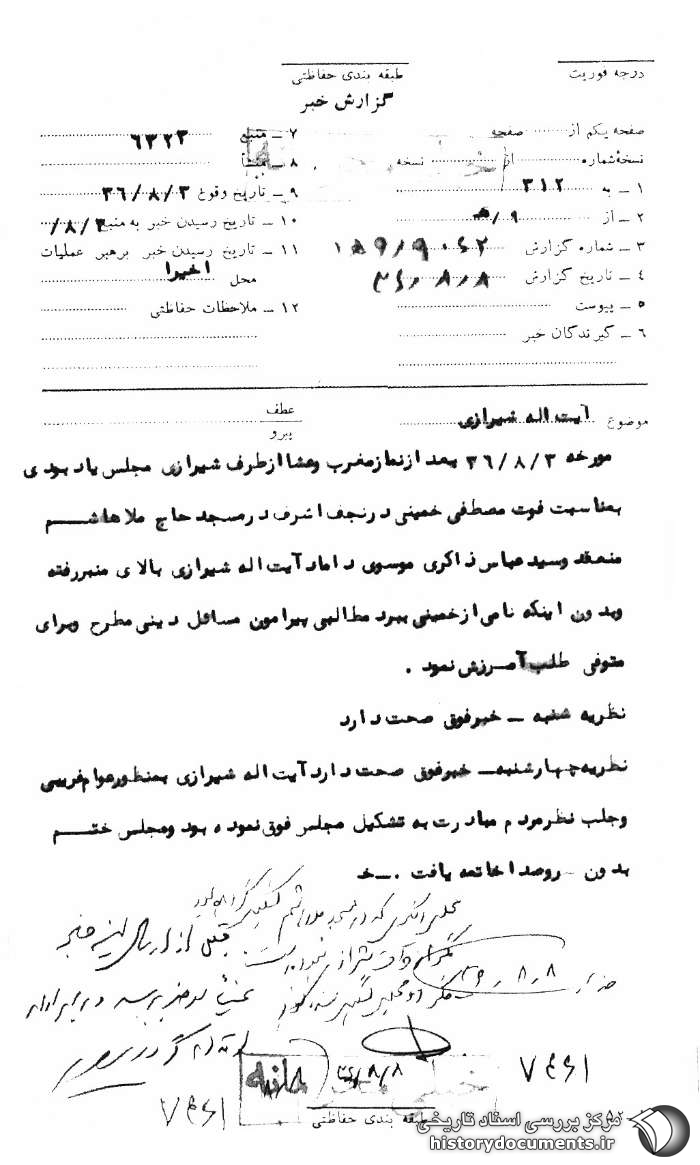 درجه فوریت
طبقه بندی حفاظتی
گزارش خبر
صفحه یکم از صفحه
نسخهٔ شماره از نسخه
۱ ـ به ۳۱۲
۲ ـ از ۹/ه
۳ ـ شماره گزارش
۴ ـ تاریخ گزارش ۳۶/۸/۸
۵ ـ پیوست
۶ ـ گیرندگان خبر
۷ ـ منبع ۶۳۲۳
۸ ـ منشأ
۹ ـ تاریخ وقوع ۳۶/۸/۳
۱۰ ـ تاریخ رسیدن خبر به منبع ۸/۳/
۱۱ ـ تاریخ رسیدن خبر برهبر عملیات
محل اخیرا
۱۲ ـ ملاحظات حفاظتی
خیلی محرمانه
موضوع آیت اله شیرازی
عطف
پیرو
مورخه ۳۶/۸/۳ بعد ازنماز مغرب وعشا ازطرف شیرازی مجلس یاد بودی
بمناسبت فوت مصطفی خمینی درنجف اشرف درمسجد حاج ملاهاشم
منعقد وسید عباس ذاکری موسوی داماد آیت اله شیرازی بالای منبررفته
وبدون اینکه نامی ازخمینی ببرد مطالبی پیرامون مسائل دینی مطرح وبرای
متوفی طلب آمرزش نمود .
نظریه شنبه ـ خبرفوق صحت دارد
نظریه چهارشنبه ـ خبرفوق صحت دارد آیت اله شیرازی بمنظورعوام فریبی
وجلب نظرمردم مبادرت به تشکیل مجلس فوق نموده بود ومجلس ختم
بدون سروصدا خاتمه یافت .ـ خ
قبل از ارسال
۳۶/۸/۸
۳۶/۸/۸
خیلی محرمانه
طبقه بندی حفاظتی
مرکز بررسی اسناد تاریخی
historydocuments.ir